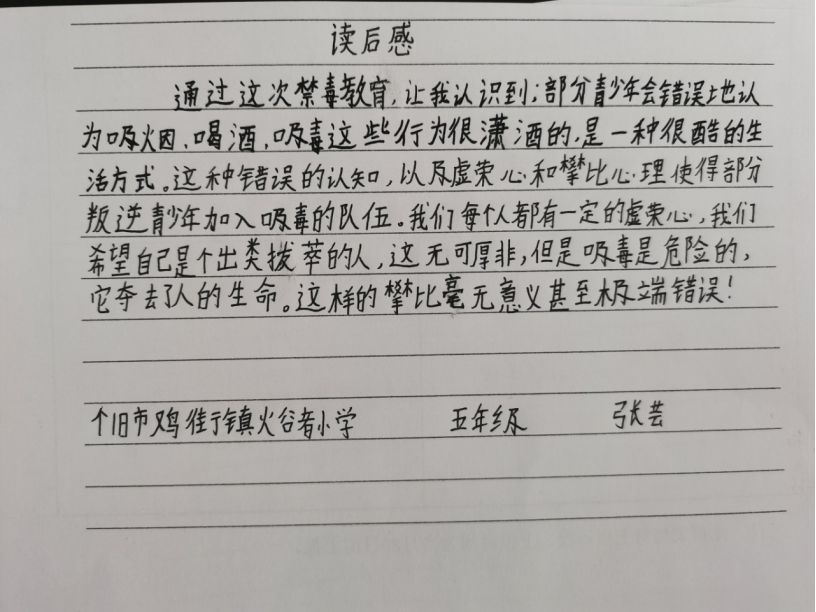 读后感
通过这次禁毒教育，让我认识到；部分青少年会错误地认
为吸烟、喝酒、吸毒这些行为很潇洒的，是一种很酷的生
活方式。这种错误的认知，以及虚荣心和攀比心理使得部分
叛逆青少年加入吸毒的队伍。我们每个人都有一定的虚荣心，我们
希望自己是个出类拔萃的人，这无可厚非，但是吸毒是危险的，
它夺去了人的生命。这样的攀比毫无意义甚至极端错误！
个旧市鸡街镇火谷者小学 五年级 张芸